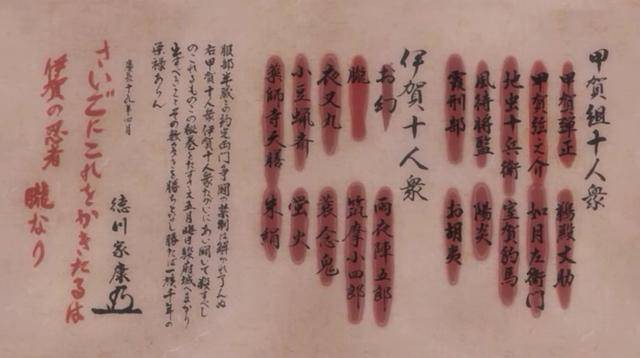 甲賀組十人衆
甲賀彈正 鵜殿丈助
甲賀弦之介 如月左衛門
地虫十兵衛 室賀豹馬
風待将監 陽炎
霞刑部 お胡夷
伊賀十人衆
お幻 雨夜陣五郎
朧 筑摩小四郎
夜叉丸 蓑念鬼
小豆蝋斎 蛍火
薬師寺天膳 朱絹
服部半蔵との約定両門争闘の禁制は解かれ了んぬ
右甲賀十人衆伊賀十人衆たがいにあい闘いて殺すべし
のこれるものこの秘巻をたずさえ五月晦日駿府城へまかり
出ずべきことその数多きを勝ちとなし勝たば一族千年の
栄禄あらん
慶長十九年四月
徳川家康
さいごにこれをかきたるは
伊賀の忍者 朧なり